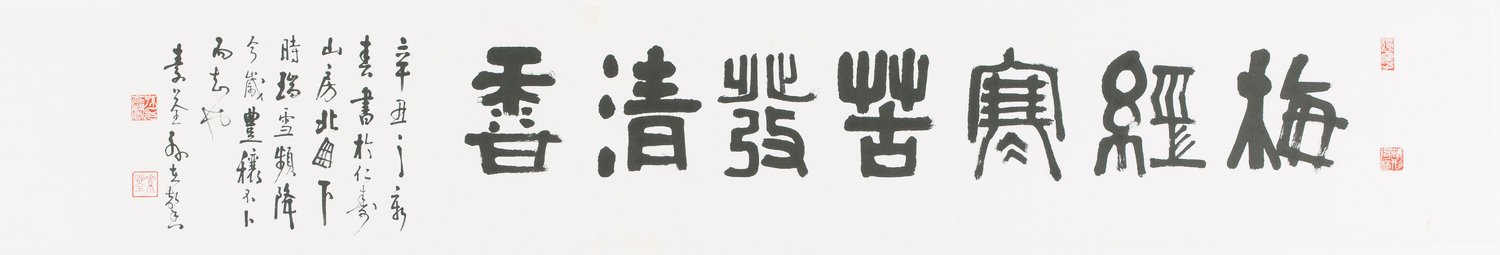 梅經寒苦發清香
辛丑之新
春書於仁壽
山房北曲下
時瑞雪頻降
今歲豐穰不卜
而知也